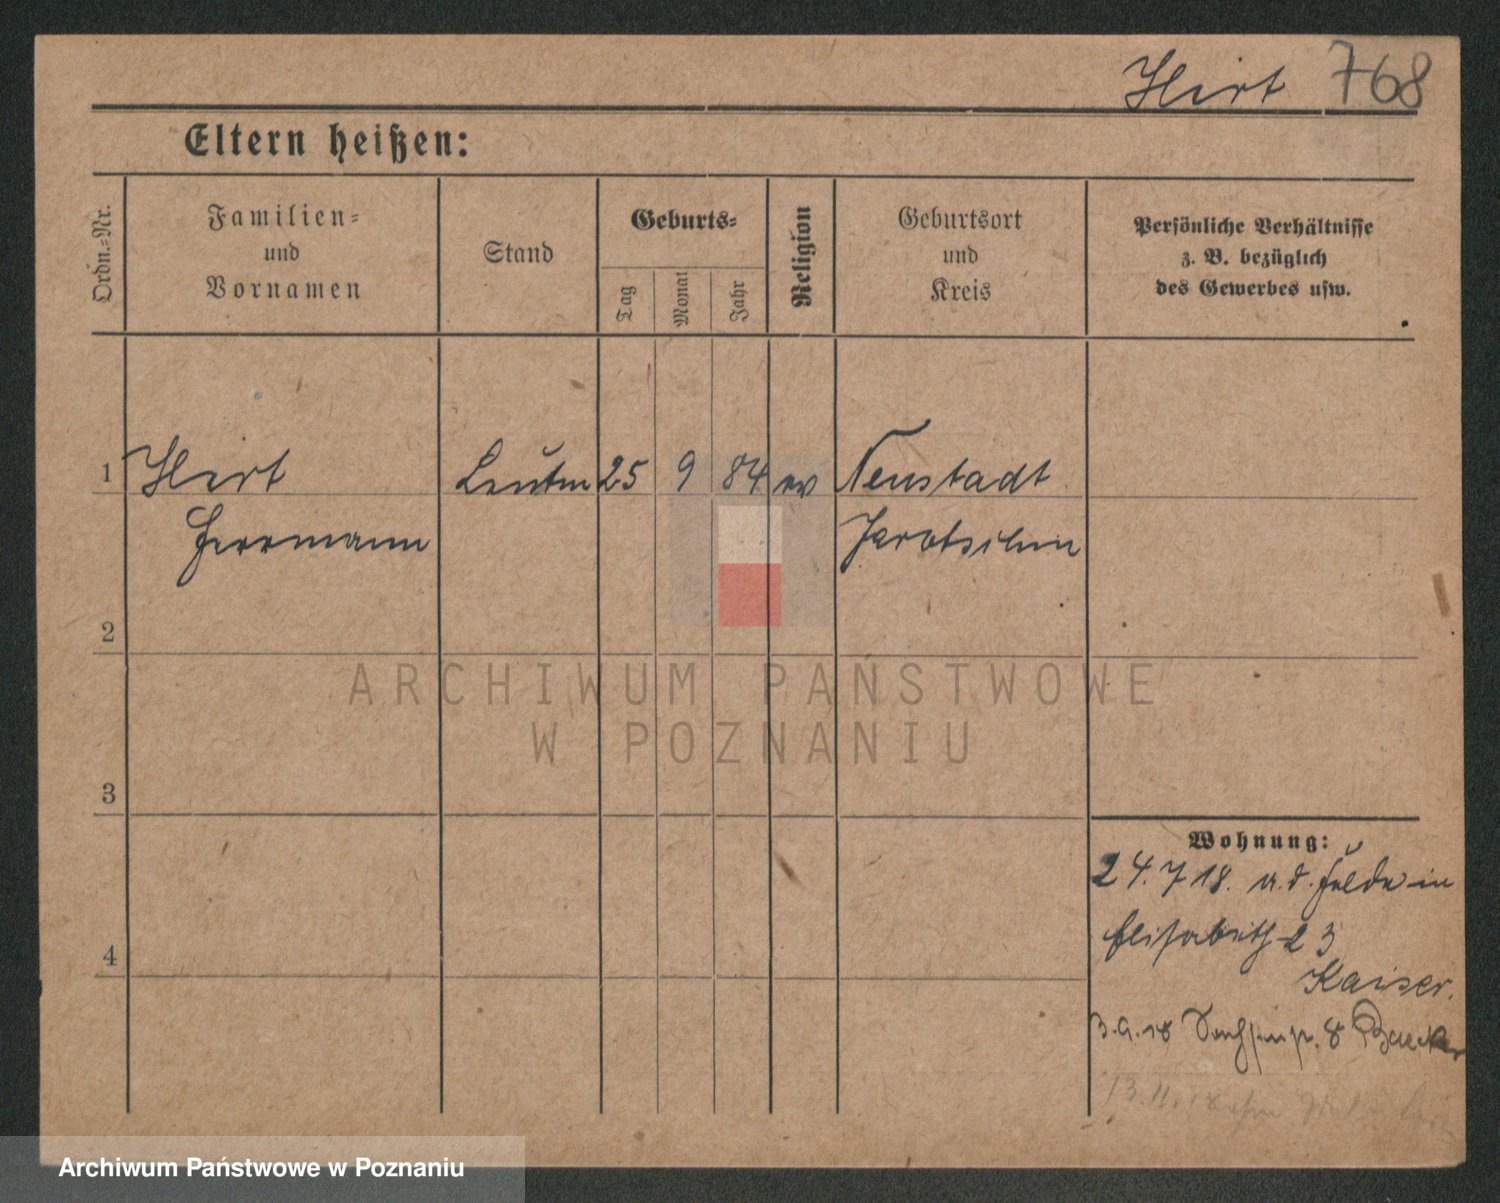 Hirt 768
Eltern heißen:
Ordn.-Nr.
Familien-
und
Vornamen
Stand
Geburts-
Tag
Monat
Jahr
Religion
Geburtsort
und
Kreis
Persönliche Verhältnisse
z. B. bezüglich
des Gewerbes usw.
1 Hirt Leutn 25 9 84 ev Neustadt
Herrmann Jarotschin
2
3
4
Wohnung:
24.7.18. a. d. Felde in
Elisabeth 23
Kaiser.
3.9.18 8
13.11.18
ARCHIWUM PAŃSTWOWE
W POZNANIU
Archiwum Państwowe w Poznaniu